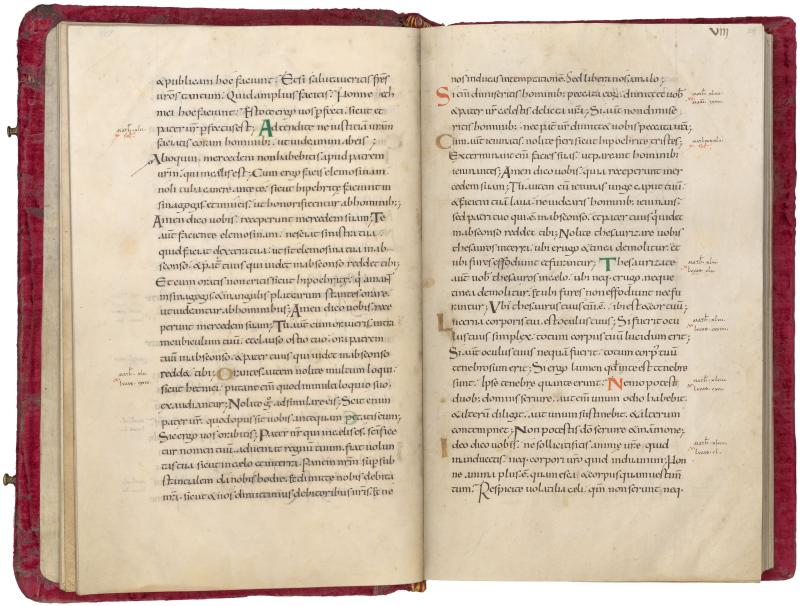 & publicani hoc faciunt; Et si salutaveritis frēs
vr̄os tantum. Quid amplius facitis? Nonne eth
nici hoc faciunt; Estote ergo vos ꝑfecti. sicut et
pater vr̄ ꝑfectus est; Adtendite ne iusticiā vr̄am
faciatis coram hominib;. ut videamini ab eis;
Alioquin mercedem non habebitis apud patrem
vr̄m. qui in celis est; Cum ergo facis elemosinam
noli tuba canere ante te. sicut hipochrite faciunt in
sinagogis et in vicis. ut honorificentur ab hominib;;
Amen dico vobis. receperunt mercedem suam; Te
aut̄ faciente elemosinam. nesciat sinistra tua.
quid faciat dextera tua. ut sit elemosina tua in ab
sconso. & pat̄ tuus qui videt in absconso reddet tibi;
Et cum oratis non eritis sicut hipochrite. qͥ amant
in sinagogis & in angulis platearum stantes orare.
ut videantur ab hominibus; Amen dico vobis. rece
perunt mercedem suam; Tu aut̄ cum oraveris. intra
in cubiculum tuū. et clauso ostio tuo. ora patrem
tuū in absconso. & pater tuus qui videt in absconso
reddet tibi; Orantes autem nolite multum loqui.
sicut hethnici. putant enī quod in multiloquio suo
exaudiantur; Nolite g̊ adsimilare eis; Scit enim
pater vr̄. quod opus sit vobis. antequam petatis eum;
Sic ergo vos orabitis; Pater nr̄ qui in celis es. scificet
tur nomen tuū. adveniat regnū tuum. fiat volun
tas tua sicut in celo et in terra. Panem nrm̄ supsub
stantialem da nobis hodie. & dimitte nobis debita
nr̄a. sicut & nos dimittimus debitoribus nr̄is. & ne
VIII
nos inducas in temptationē. Sed libera nos a malo;
Si enī dimiseritis hominib; peccata eoꝝ. dimittet vob̄
& pater vr̄ celestis delicta vr̄a; Si aut̄ non dimise
ritis hominib;. nec pat̄ vr̄ dimittet vobis peccata vr̄a;
Cum aut̄ ieiunatis. nolite fieri sicut hipochrite tristes;
Exterminant enī facies suas. ut pareant hominib;
ieiunantes; Amen dico vobis. quia receperunt mer
cedem suam; Tu autem cū ieiunas unge caput tuū.
& faciem tuā lava. ne videaris hominib; ieiunans.
sed patri tuo qui ē in absconso. et pater tuus qui videt
in absconso reddet tibi; Nolite thesaurizare vobis
thesauros in terra. ubi erugo & tinea demolitur. et
ubi fures effodiunt et furantur; Thesaurizate
aut̄ vob̄ thesauros in celo. ubi neq; erugo. neque
tinea demolitur. & ubi fures non effodiunt nec fu
rantur; Ubi thesaurus tuus ē. ibi est & cor tuū;
Lucerna corporis tui. est oculus tuus; Si fuerit ocu
lus tuus simplex. totum corpus tuū lucidum erit;
Si aut̄ oculus tuus nequā fuerit. totum corpꝰ tuū
tenebrosum erit; Si ergo lumen qd̄ in te est tenebre
sunt. ipse tenebre quante erunt; Nemo potest
duob; dominis servire. aut enī unum odio habebit
& alterū diliget. aut unum sustinebit. & alterum
contempnet; Non potestis dō servire & mamone;
Ideo dico vobis. ne solliciti sitis anime vr̄e. quid
manducetis. neq; corpori vr̄o. quid induamini; Non
ne anima plus ē quam esca. & corpus quam vestim̄
tum. Respicite volatilia celi. qm̄ non serunt. neq.